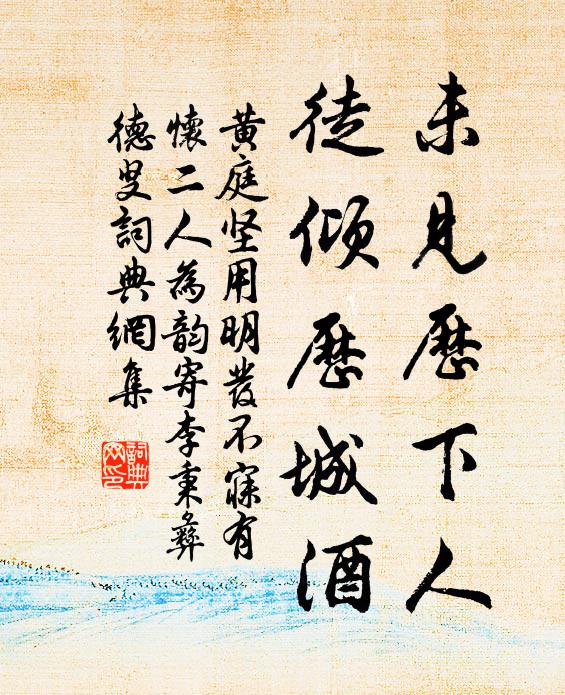 未見歷下人
徒傾歷城酒
黄庭坚用明發不寐有
懷二人為韵寄李秉彝
德叟詞典網集
詞典
网印